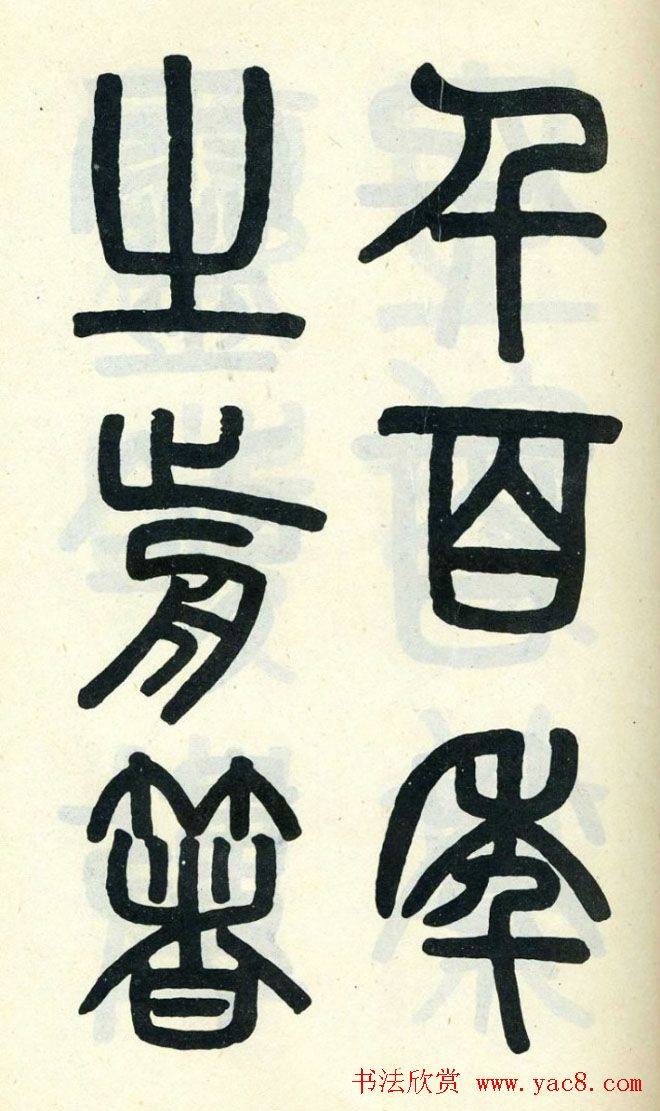 千百年
之前箸
书法欣赏 www.yac8.com